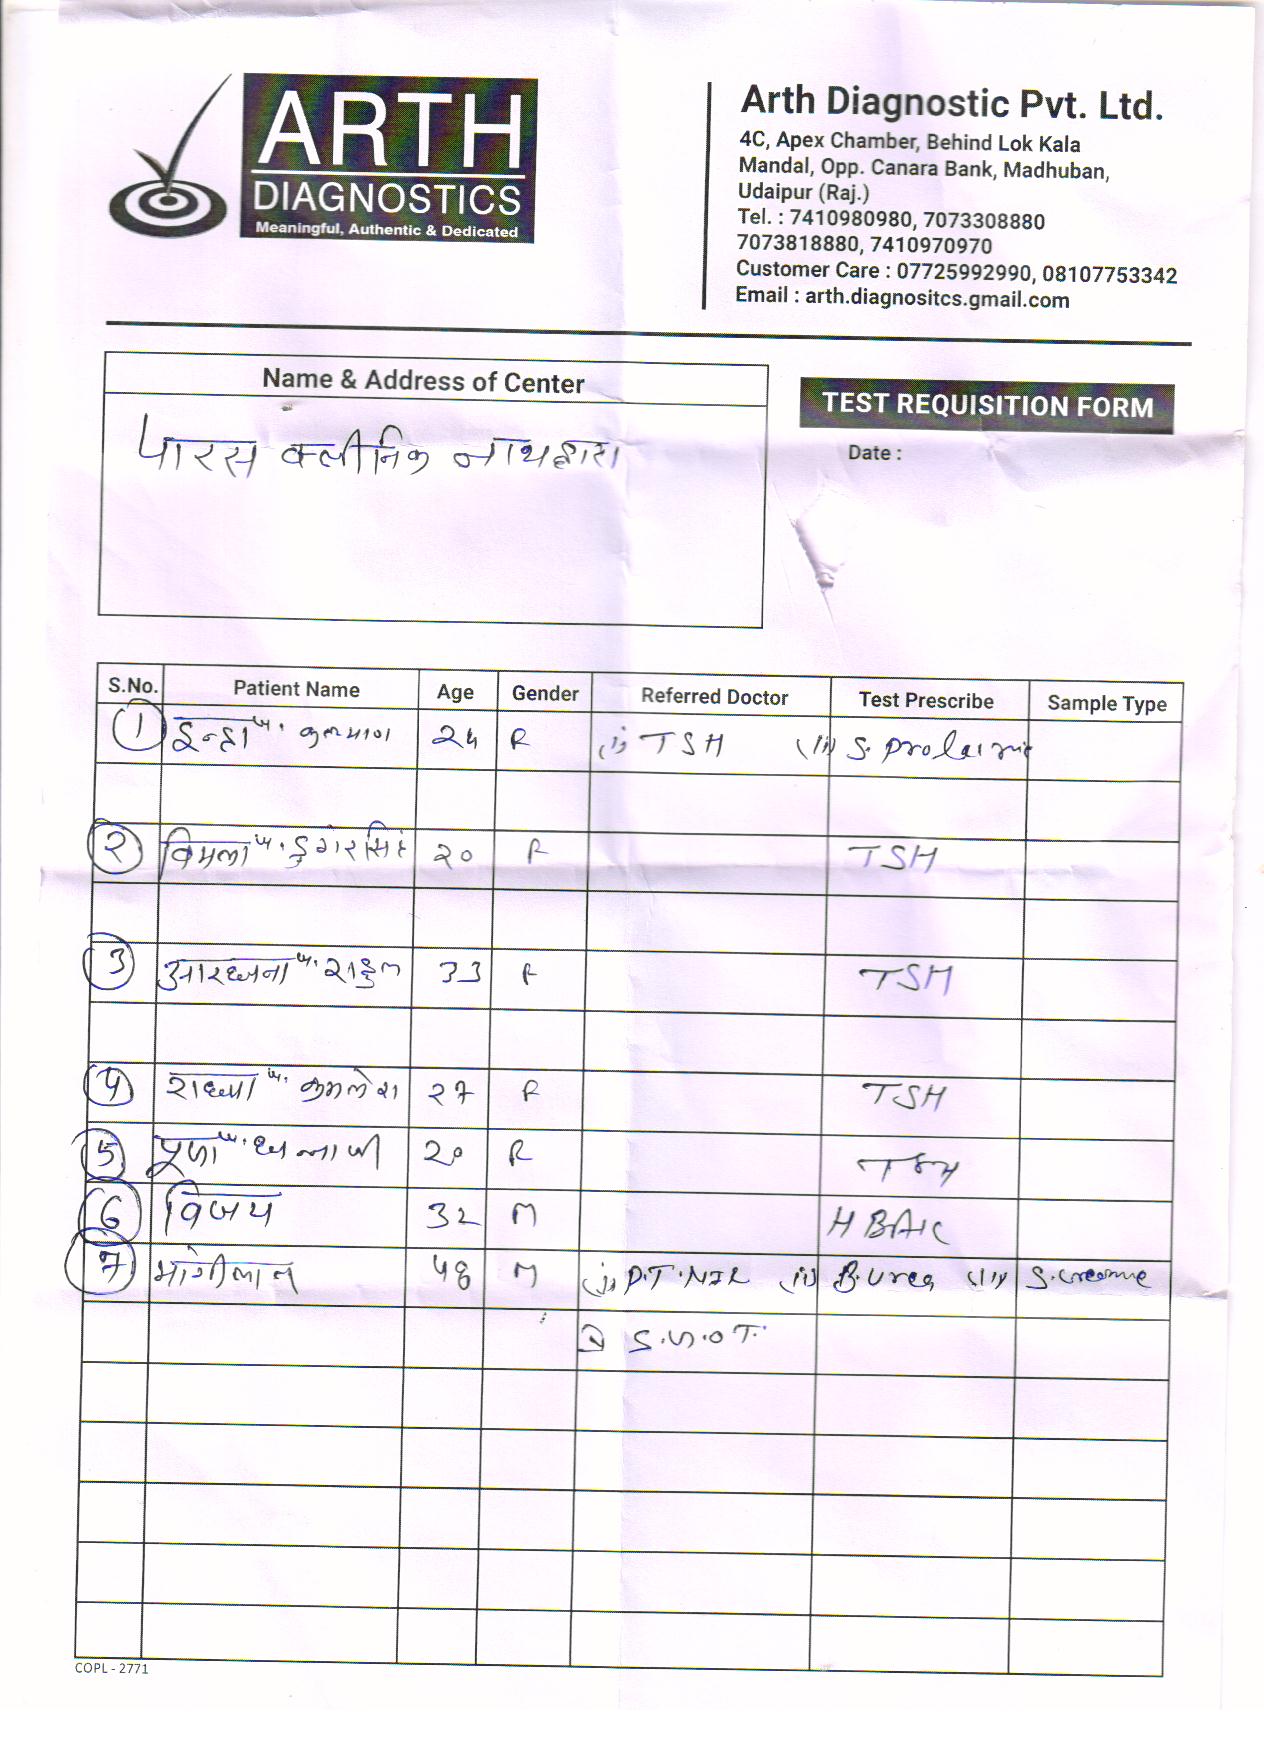 ARTH
DIAGNOSTICS
Meaningful, Authentic & Dedicated
Arth Diagnostic Pvt. Ltd.
4C, Apex Chamber, Behind Lok Kala
Mandal, Opp. Canara Bank, Madhuban,
Udaipur (Raj.)
Tel. : 7410980980, 7073308880
7073818880, 7410970970
Customer Care : 07725992990, 08107753342
Email : arth.diagnositcs.gmail.com
Name & Address of Center
TEST REQUISITION FORM
Date :
पारस क्लीनिक नाथद्वारा
S.No. Patient Name Age Gender Referred Doctor Test Prescribe Sample Type
1 इन्द्रा W. 24 F (i) TSH (ii) S.
२ विमला W. डुगरसिंह २० F TSH
3 W. राहुल 33 F TSH
4 W. कमलेश २7 F TSH
5 पूजा W. 20 F TSH
6 विजय 32 M HBA1C
7 मांगीलाल M (i) P.T.INR (ii) B.Urea (iii)
S.G.O.T.
COPL - 2771